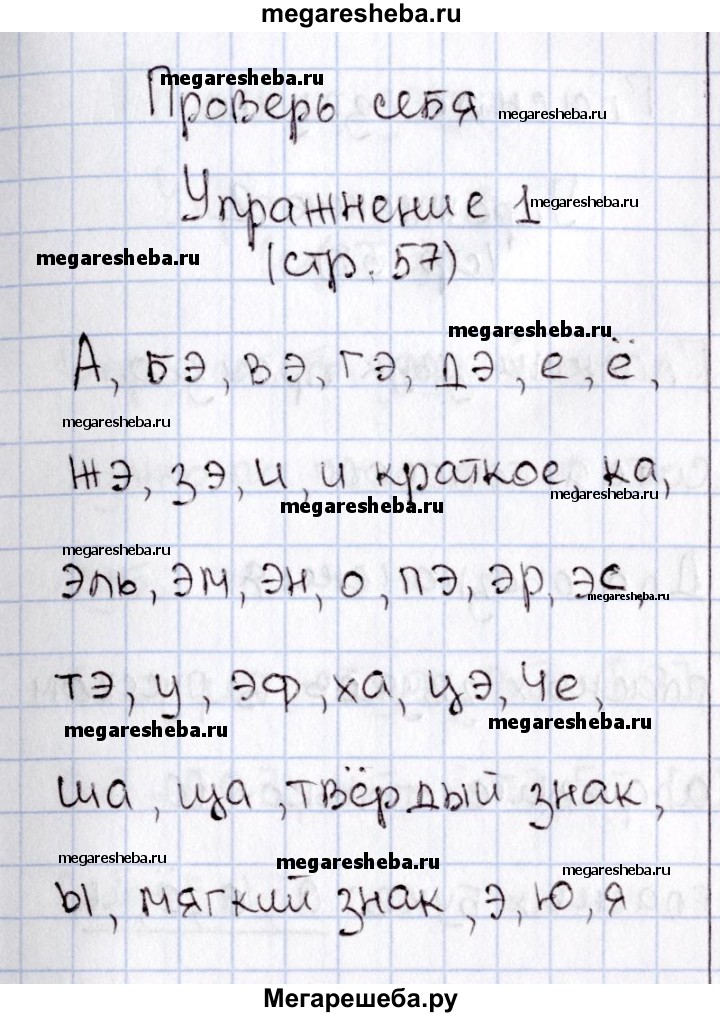 megaresheba.ru
megaresheba.ru
Проверь себя megaresheba.ru
Упражнение 1 megaresheba.ru
megaresheba.ru (стр. 57)
megaresheba.ru
А, бэ, вэ, гэ, дэ, е, ё,
megaresheba.ru
жэ, зэ, и, и краткое, ка,
megaresheba.ru megaresheba.ru
megaresheba.ru
эль, эм, эн, о, пэ, эр, эс,
megaresheba.ru
тэ, у, эф, ха, цэ, че,
megaresheba.ru megaresheba.ru
ша, ща, твёрдый знак,
megaresheba.ru megaresheba.ru megaresheba.ru
ы, мягкий знак, э, ю, я
Мегарешеба.ру